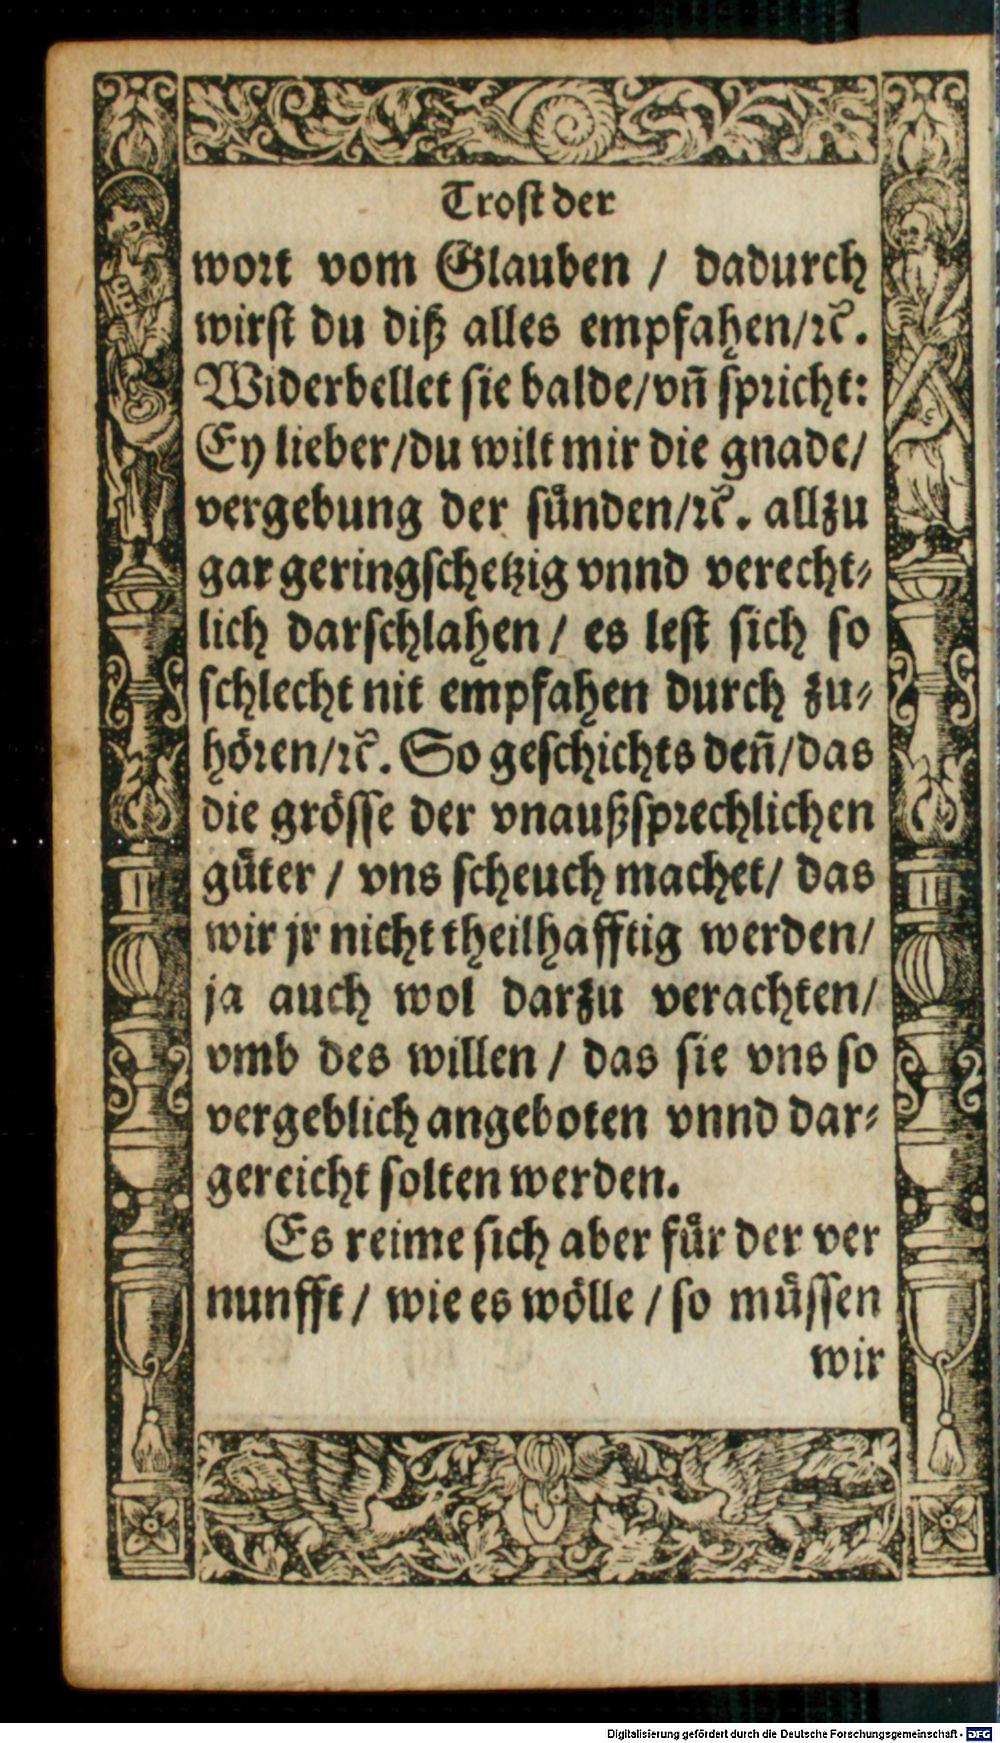 Trost der
wort vom Glauben / dadurch
wirst du diß alles empfahen/ꝛc̃.
Widerbellet sie balde/vñ spricht:
Ey lieber/du wilt mir die gnade/
vergebung der sünden/ꝛc̃. allzu
gar geringschetzig vnnd verecht⸗
lich darschlahen / es lest sich so
schlecht nit empfahen durch zu⸗
hören/ꝛc̃. So geschichts deñ/das
die grösse der vnaußsprechlichen
güter / vns scheuch machet/ das
wir jr nicht theilhafftig werden/
ja auch wol darzu verachten/
vmb des willen / das sie vns so
vergeblich angeboten vnnd dar⸗
gereicht solten werden.
Es reime sich aber für der ver
nunfft / wie es wölle / so müssen
wir
Digitalisierung gefördert durch die Deutsche Forschungsgemeinschaft - DFG